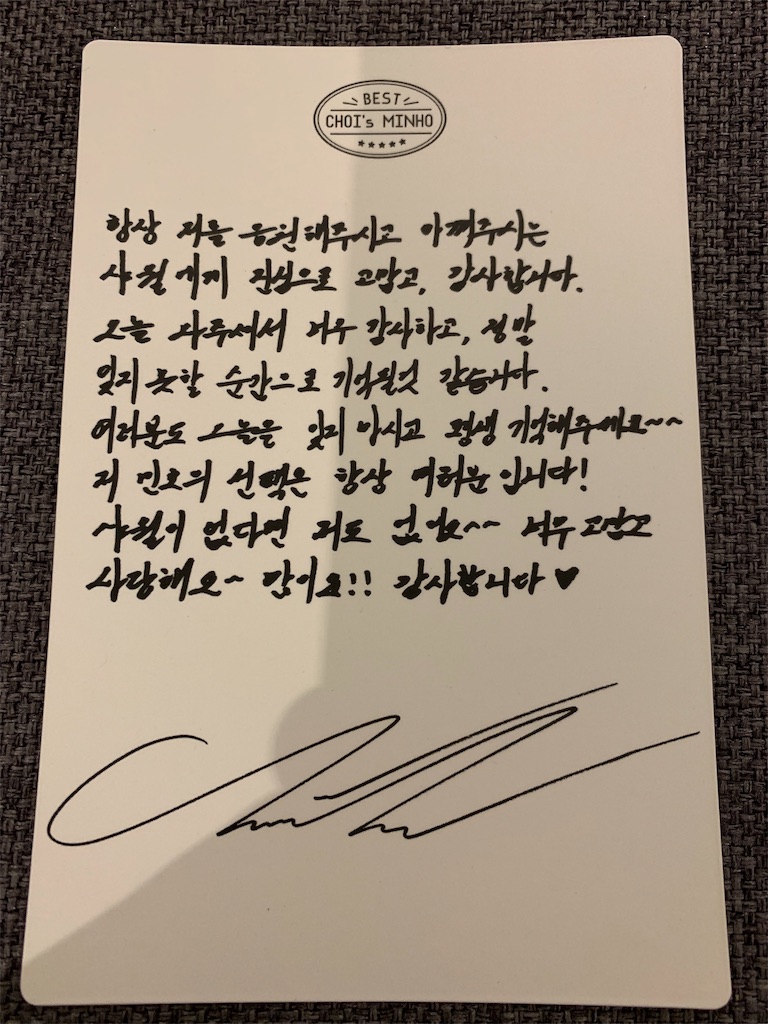 BEST
CHOI's MINHO
항상 저를 응원해주시고 아껴주시는
샤월에게 진심으로 고맙고, 감사합니다.
오늘 와주셔서 너무 감사하고, 정말
잊지 못할 순간으로 기억될것 같습니다.
여러분도 오늘을 잊지 마시고 평생 기억해주세요~~
저 민호의 선택은 항상 여러분 입니다!
샤월이 없다면 저도 없어요~~ 너무 고맙고
사랑해요~ 많이요!! 감사합니다 ♥